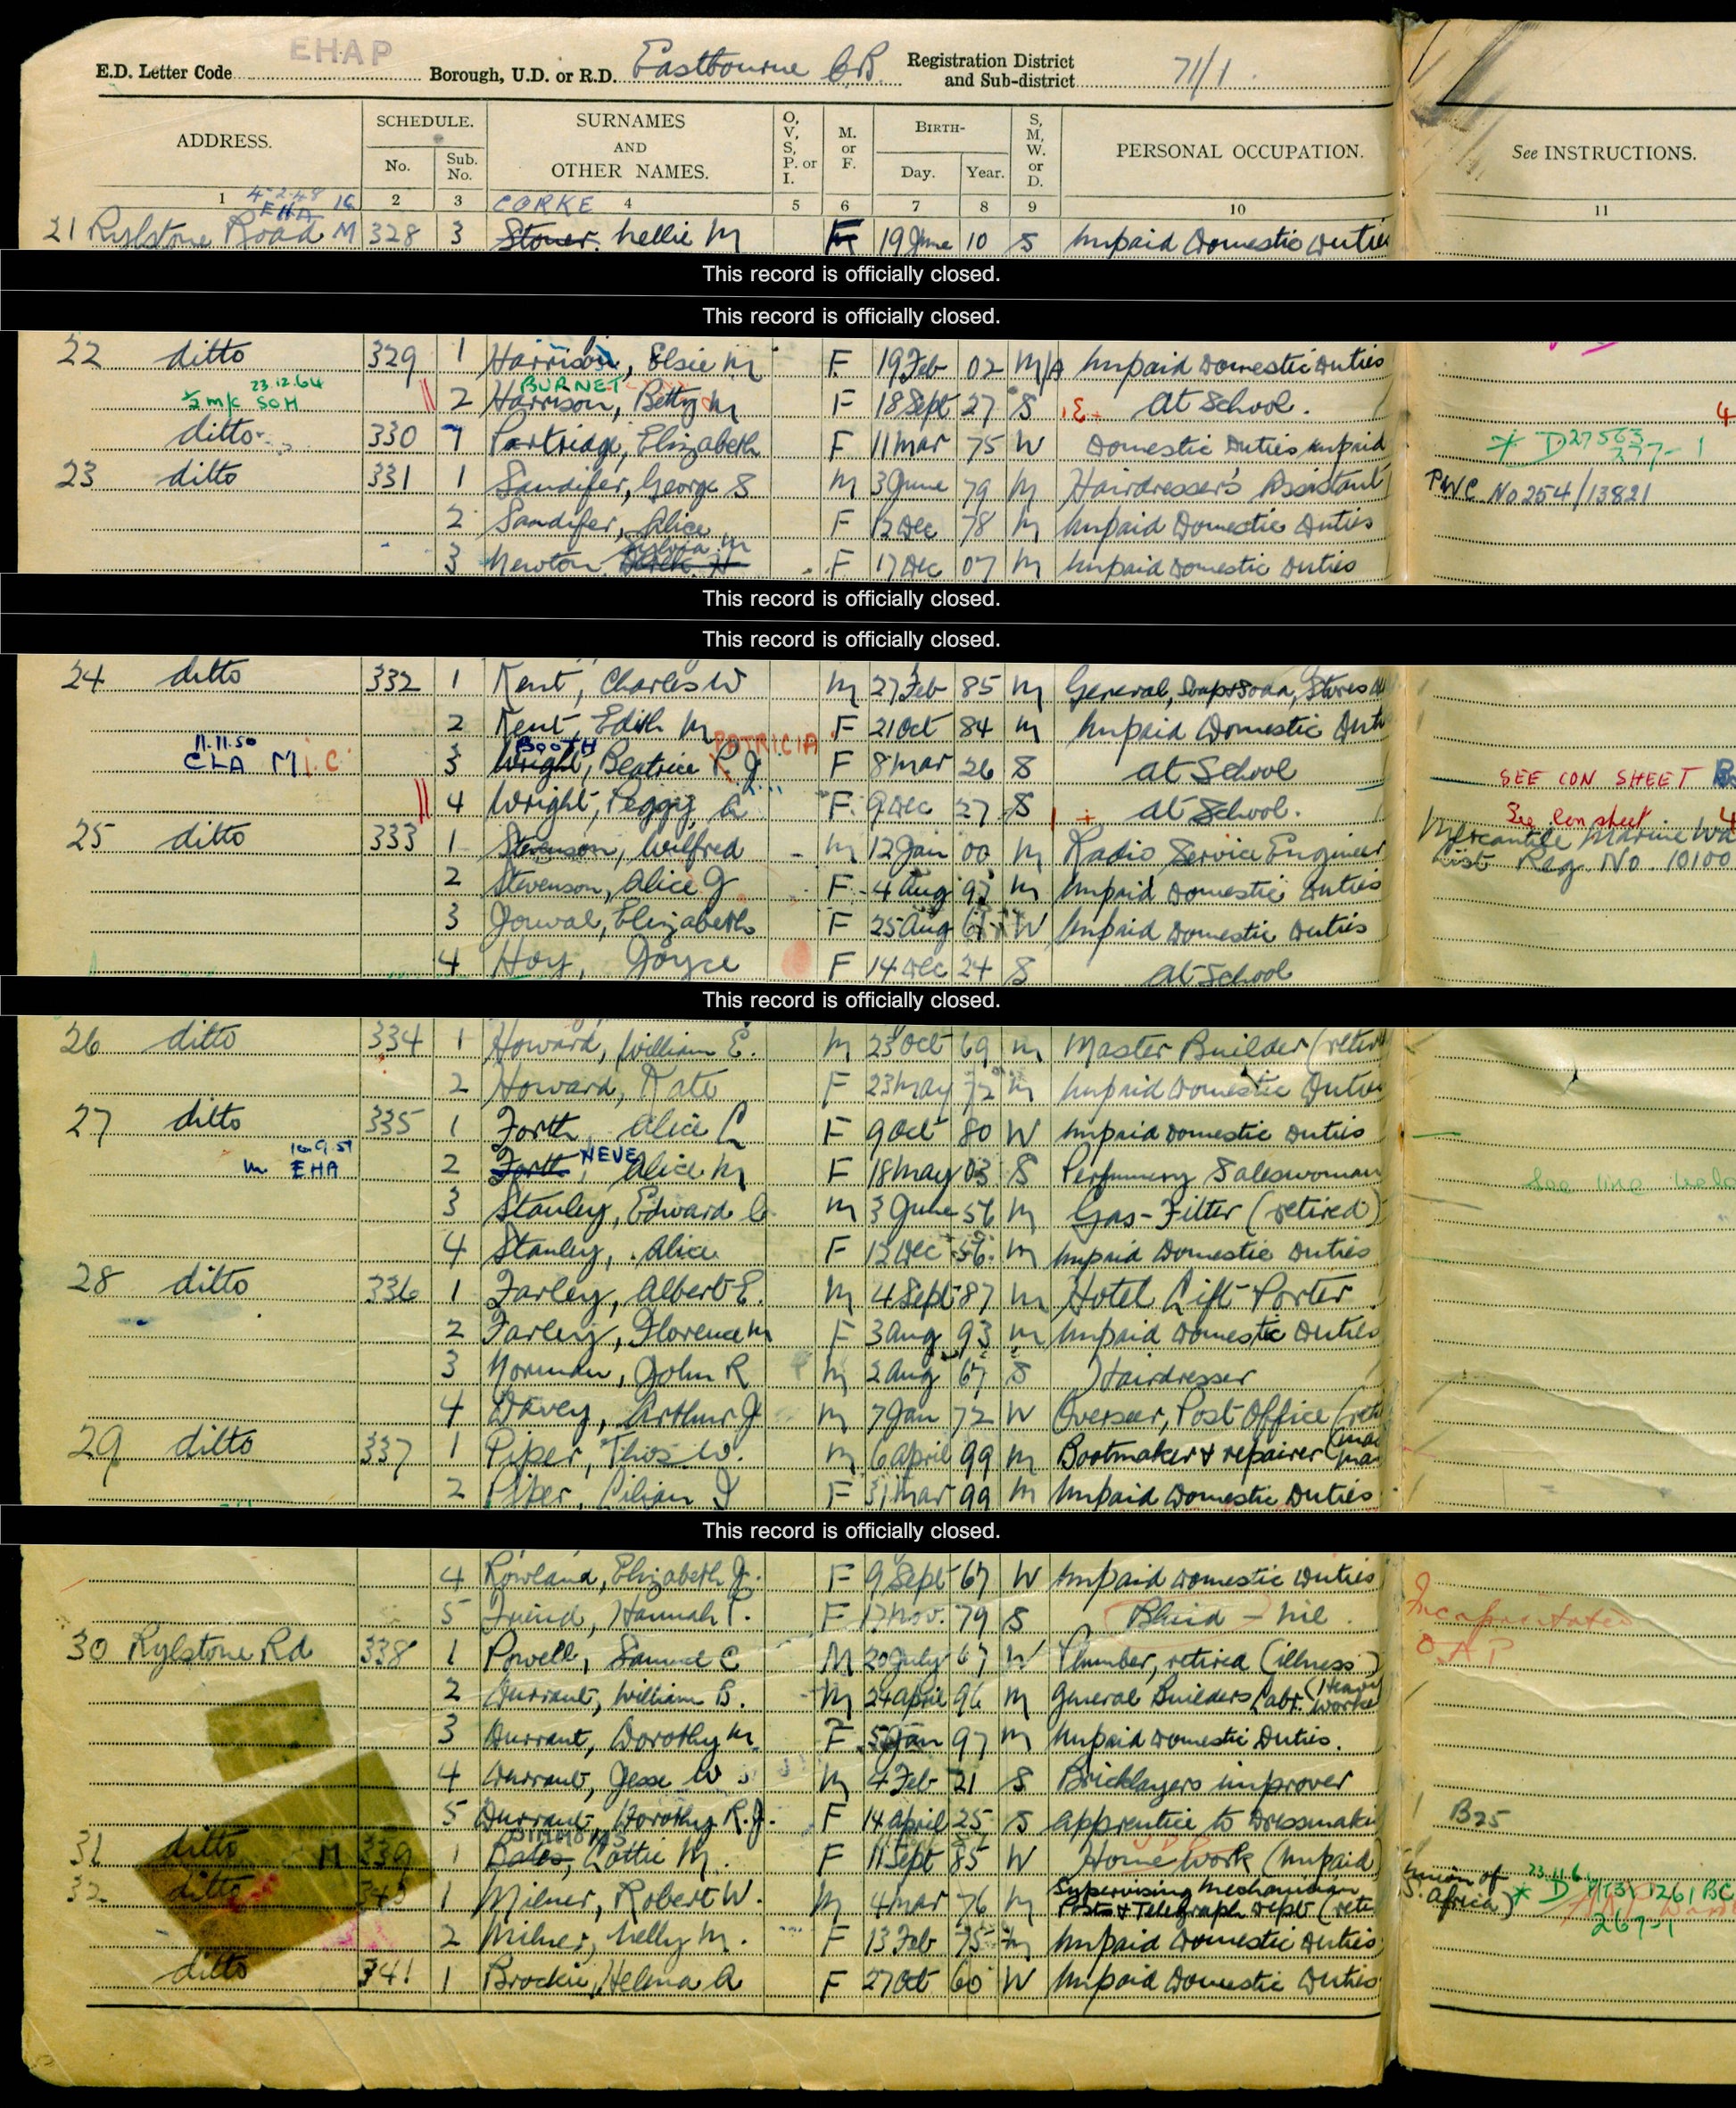 EHAP
E.D. Letter Code Borough, U.D. or R.D. Eastbourne C.B. Registration District and Sub-district 71/1
ADDRESS. SCHEDULE. No. Sub. No. SURNAMES AND OTHER NAMES. O, V, S, P. or I. M. or F. BIRTH- Day. Year. S, M, W. or D. PERSONAL OCCUPATION. See INSTRUCTIONS.
1 2 3 4 5 6 7 8 9 10 11
4-2-48 EHA CORKE
21 Rylstone Road M 328 3 Stoner, Nellie M F 19 June 10 S Unpaid Domestic Duties
This record is officially closed.
This record is officially closed.
22 ditto 329 1 Harrison, Elsie M F 19 Feb 02 M/A Unpaid Domestic Duties
23.12.64 BURNET
½ m/c SOH 2 Harrison, Betty M F 18 Sept 27 S E At School.
ditto 330 1 Partridge, Elizabeth F 11 Mar 75 W Domestic Duties unpaid * D27563
23 ditto 331 1 Sandifer, George S M 3 June 79 M Hairdresser's Assistant PWC No 254/13821
2 Sandifer, Alice F 12 Dec 78 M Unpaid Domestic Duties
Sylvia M
3 Newton F 17 Dec 07 M Unpaid Domestic Duties
This record is officially closed.
This record is officially closed.
24 ditto 332 1 Kent, Charles W M 27 Feb 85 M General, Soap & Soda, Stores
2 Kent, Edith M F 21 Oct 84 M Unpaid Domestic Duti
11.11.50 BOOTH PATRICIA
CLA M I.C 3 Wright, Beatrice P. J F 8 Mar 26 S At School SEE CON SHEET
4 Wright, Peggy, A F 9 Dec 27 S At School. See Con sheet
25 ditto 333 1 Stevenson, Wilfred M 12 Jan 00 M Radio Service Engineer Mercantile Marine Wa
List Reg No. 10100
2 Stevenson, Alice J F 4 Aug 97 M Unpaid Domestic Duties
3 Elizabeth F 25 Aug W Unpaid Domestic Duties
4 Hoy, Joyce F 14 Dec 24 S At School
This record is officially closed.
26 ditto 334 1 Howard, William E. M 23 Oct 69 M Master Builder (retir
2 Howard, Kate F 23 May 72 M Unpaid Domestic Duties
27 ditto 335 1 Forth, Alice L F 9 Oct 80 W Unpaid Domestic Duties
NEVE
M EHA 2 Forth, Alice M F 18 May 03 S Perfumery Saleswoman See line below
3 Stanley, Edward C M 3 June 56 M Gas-Fitter (retired)
4 Stanley, Alice F 12 Dec 56 M Unpaid Domestic Duties
28 ditto 336 1 Farley, Albert E. M 4 Sept 87 M Hotel Lift Porter
2 Farley, Florence M F 3 Aug 93 M Unpaid Domestic Duties
3 Norman, John R M 2 Aug 67 S Hairdresser
4 Davey, Arthur J M 7 Jan 72 W Overseer, Post Office (reti
29 ditto 337 1 Piper, Thos W. M 6 April 99 M Bootmaker & repairer
2 Piper, Lilian J F 31 Mar 99 M Unpaid Domestic Duties
This record is officially closed.
4 Rowland, Elizabeth J. F 9 Sept 67 W Unpaid Domestic Duties
5 Friend, Hannah P. F 17 Nov. 79 S Blind - nil. Incapacitated
O.A.P
30 Rylstone Rd 338 1 Powell, Samuel C M 20 July 67 W Plumber, retired (illness)
2 Durrant, William B. M 24 April 96 M General Builders Labr. (Heavy Worker
3 Durrant, Dorothy M. F 5 Jan 97 M Unpaid Domestic Duties.
4 Durrant, Jesse W M 4 Feb 21 S Bricklayers improver
5 Durrant, Dorothy R. J. F 14 April 25 S Apprentice to Dressmaki B25
31 ditto M 339 1 Bates, Lottie M. F 11 Sept 85 W Home Work (Unpaid)
32 ditto 340 1 Milner, Robert W. M 4 Mar 76 M Supervising Mechanician Post & Telegraph Dept (reti Union of S. Africa) * D
267-1
2 Milner, Nelly M. F 13 Feb 75 M Unpaid Domestic Duties
ditto 341 1 Brockie, Helena A F 27 Oct 60 W Unpaid Domestic Duties